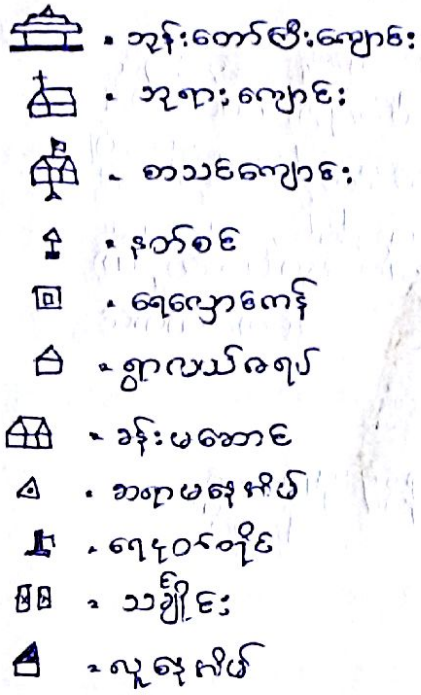 - ဘုန်းတော်ကြီးကျောင်း
- ဘုရားကျောင်း
- စာသင်ကျောင်း
- နတ်စင်
- ရေလှောင်ကန်
- ရွာလယ်ဇရပ်
- ခန်းမဆောင်
- ဆရာမနေအိမ်
- ရေပုဝ်တိုင်
- သင်္ချိုင်း
- လူနေအိမ်